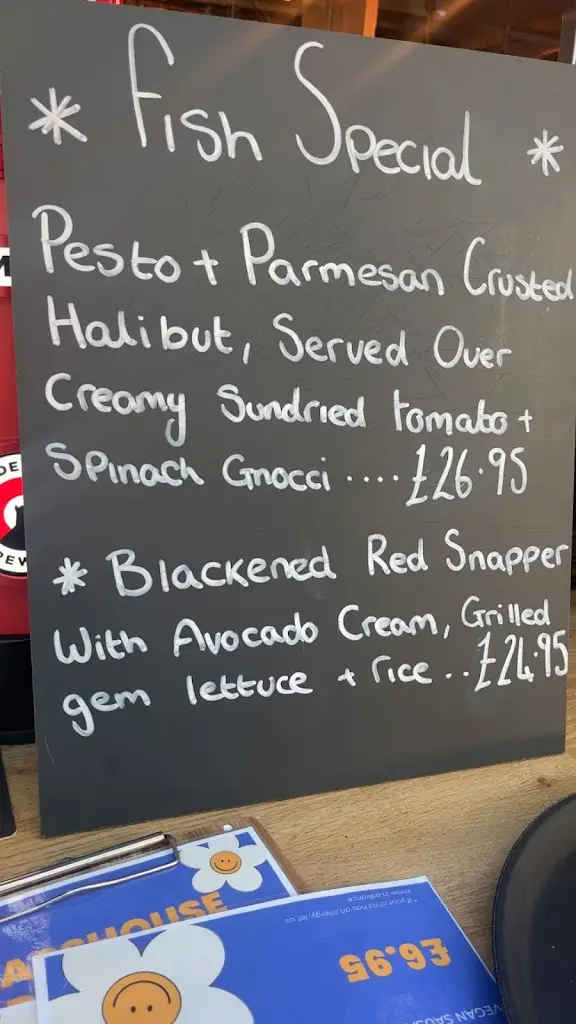 * Fish Special *
Pesto + Parmesan Crusted
Halibut, Served Over
Creamy Sundried tomato +
Spinach Gnocci .... £26.95
* Blackened Red Snapper
With Avocado Cream, Grilled
gem lettuce + rice .. £24.95
* If your child has an allergy, let us
know in advance
£6.95
VEGAN